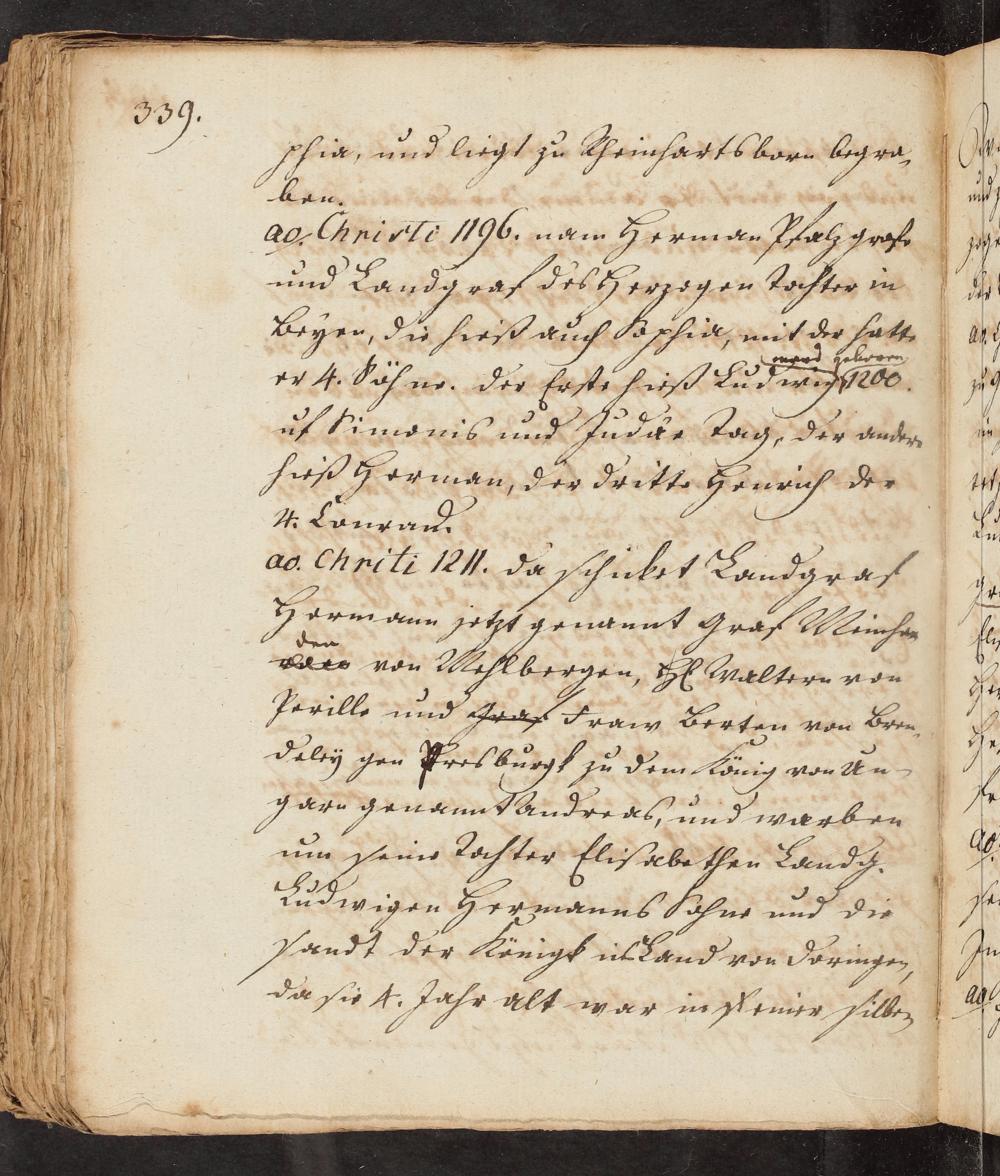 339.
phia, und liegt zu Rheinhartsborn begra,
ben.
ao. Christi 1196. nam Herman Pfalzgrafe
und Landgraf des Herzogen Tochter in
Beyen, die hieß auch Sophia, mit der hatte
er 4. Söhne. der Erste hieß Ludwig ward geboren 1200.
uf Simonis und Judae Tag, der ander
hieß Herman, der dritte Henrich der
4. Conrad.
ao. Chriti 1211. da schicket Landgraf
Hermann jetzt genannt Graf Meinhar
den von Mehlbergen, Waltern von
Perille und Graf Fraw Berten von Bren,
deleÿ gen Presburgk zu dem König von Un-
garn genannt Andreas, und warben
um seine Tochter Elisabethen Landg.
Ludwigen Hermanns Sohne und die
sandt der Königk Land von Doringen,
da sie 4. Jahr alt war in seiner silbe